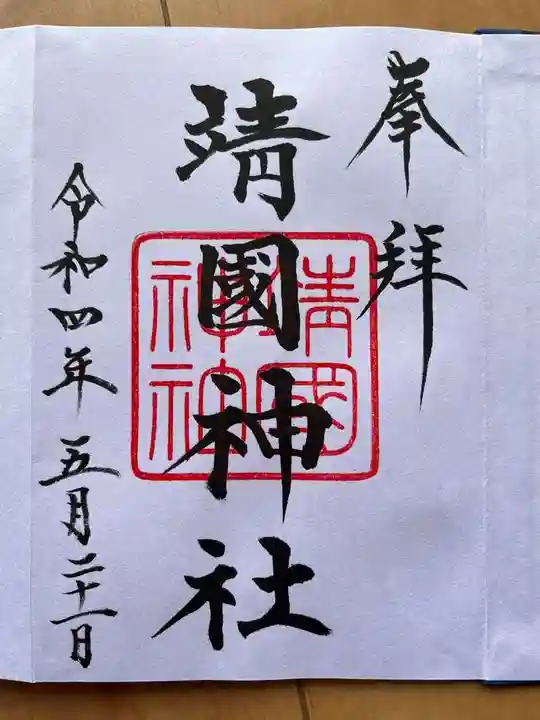 奉拝
靖國神社
靖國
神社
令和四年 五月二十一日